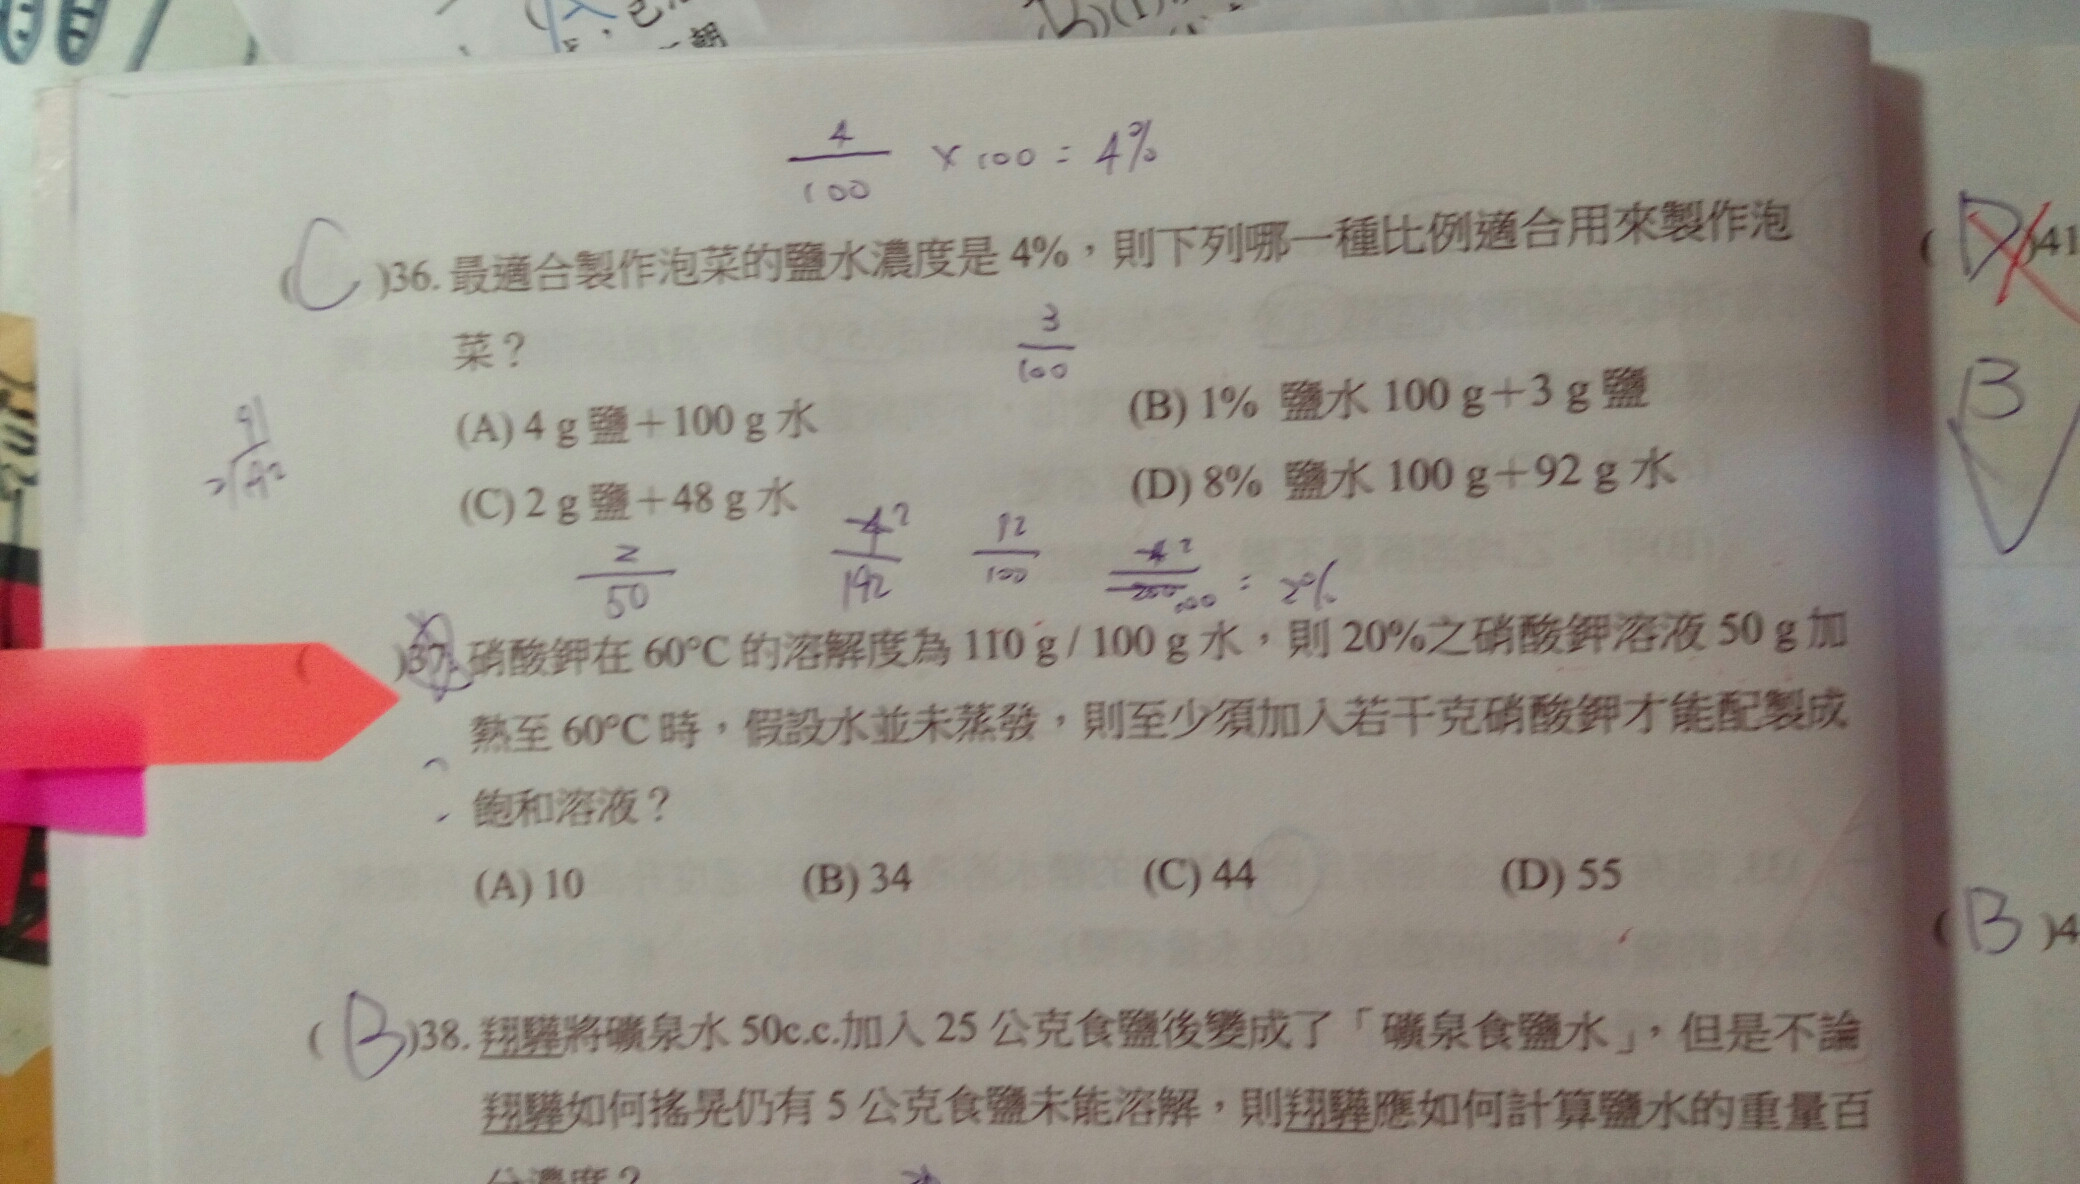 4/100 × 100 = 4%
(C)36. 最適合製作泡菜的鹽水濃度是 4%，則下列哪一種比例適合用來製作泡
菜？
3/100
(A) 4 g 鹽＋100 g 水
(B) 1% 鹽水 100 g＋3 g 鹽
(C) 2 g 鹽＋48 g 水
(D) 8% 鹽水 100 g＋92 g 水
2/50
4 2/192
12/100
= 2%
)37. 硝酸鉀在 60°C 的溶解度為 110 g / 100 g 水，則 20%之硝酸鉀溶液 50 g 加
熱至 60°C 時，假設水並未蒸發，則至少須加入若干克硝酸鉀才能配製成
飽和溶液？
(A) 10
(B) 34
(C) 44
(D) 55
(B)38. 翔驊將礦泉水 50c.c.加入 25 公克食鹽後變成了「礦泉食鹽水」，但是不論
翔驊如何搖晃仍有 5 公克食鹽未能溶解，則翔驊應如何計算鹽水的重量百
分濃度？
(D)41
B
(B)4